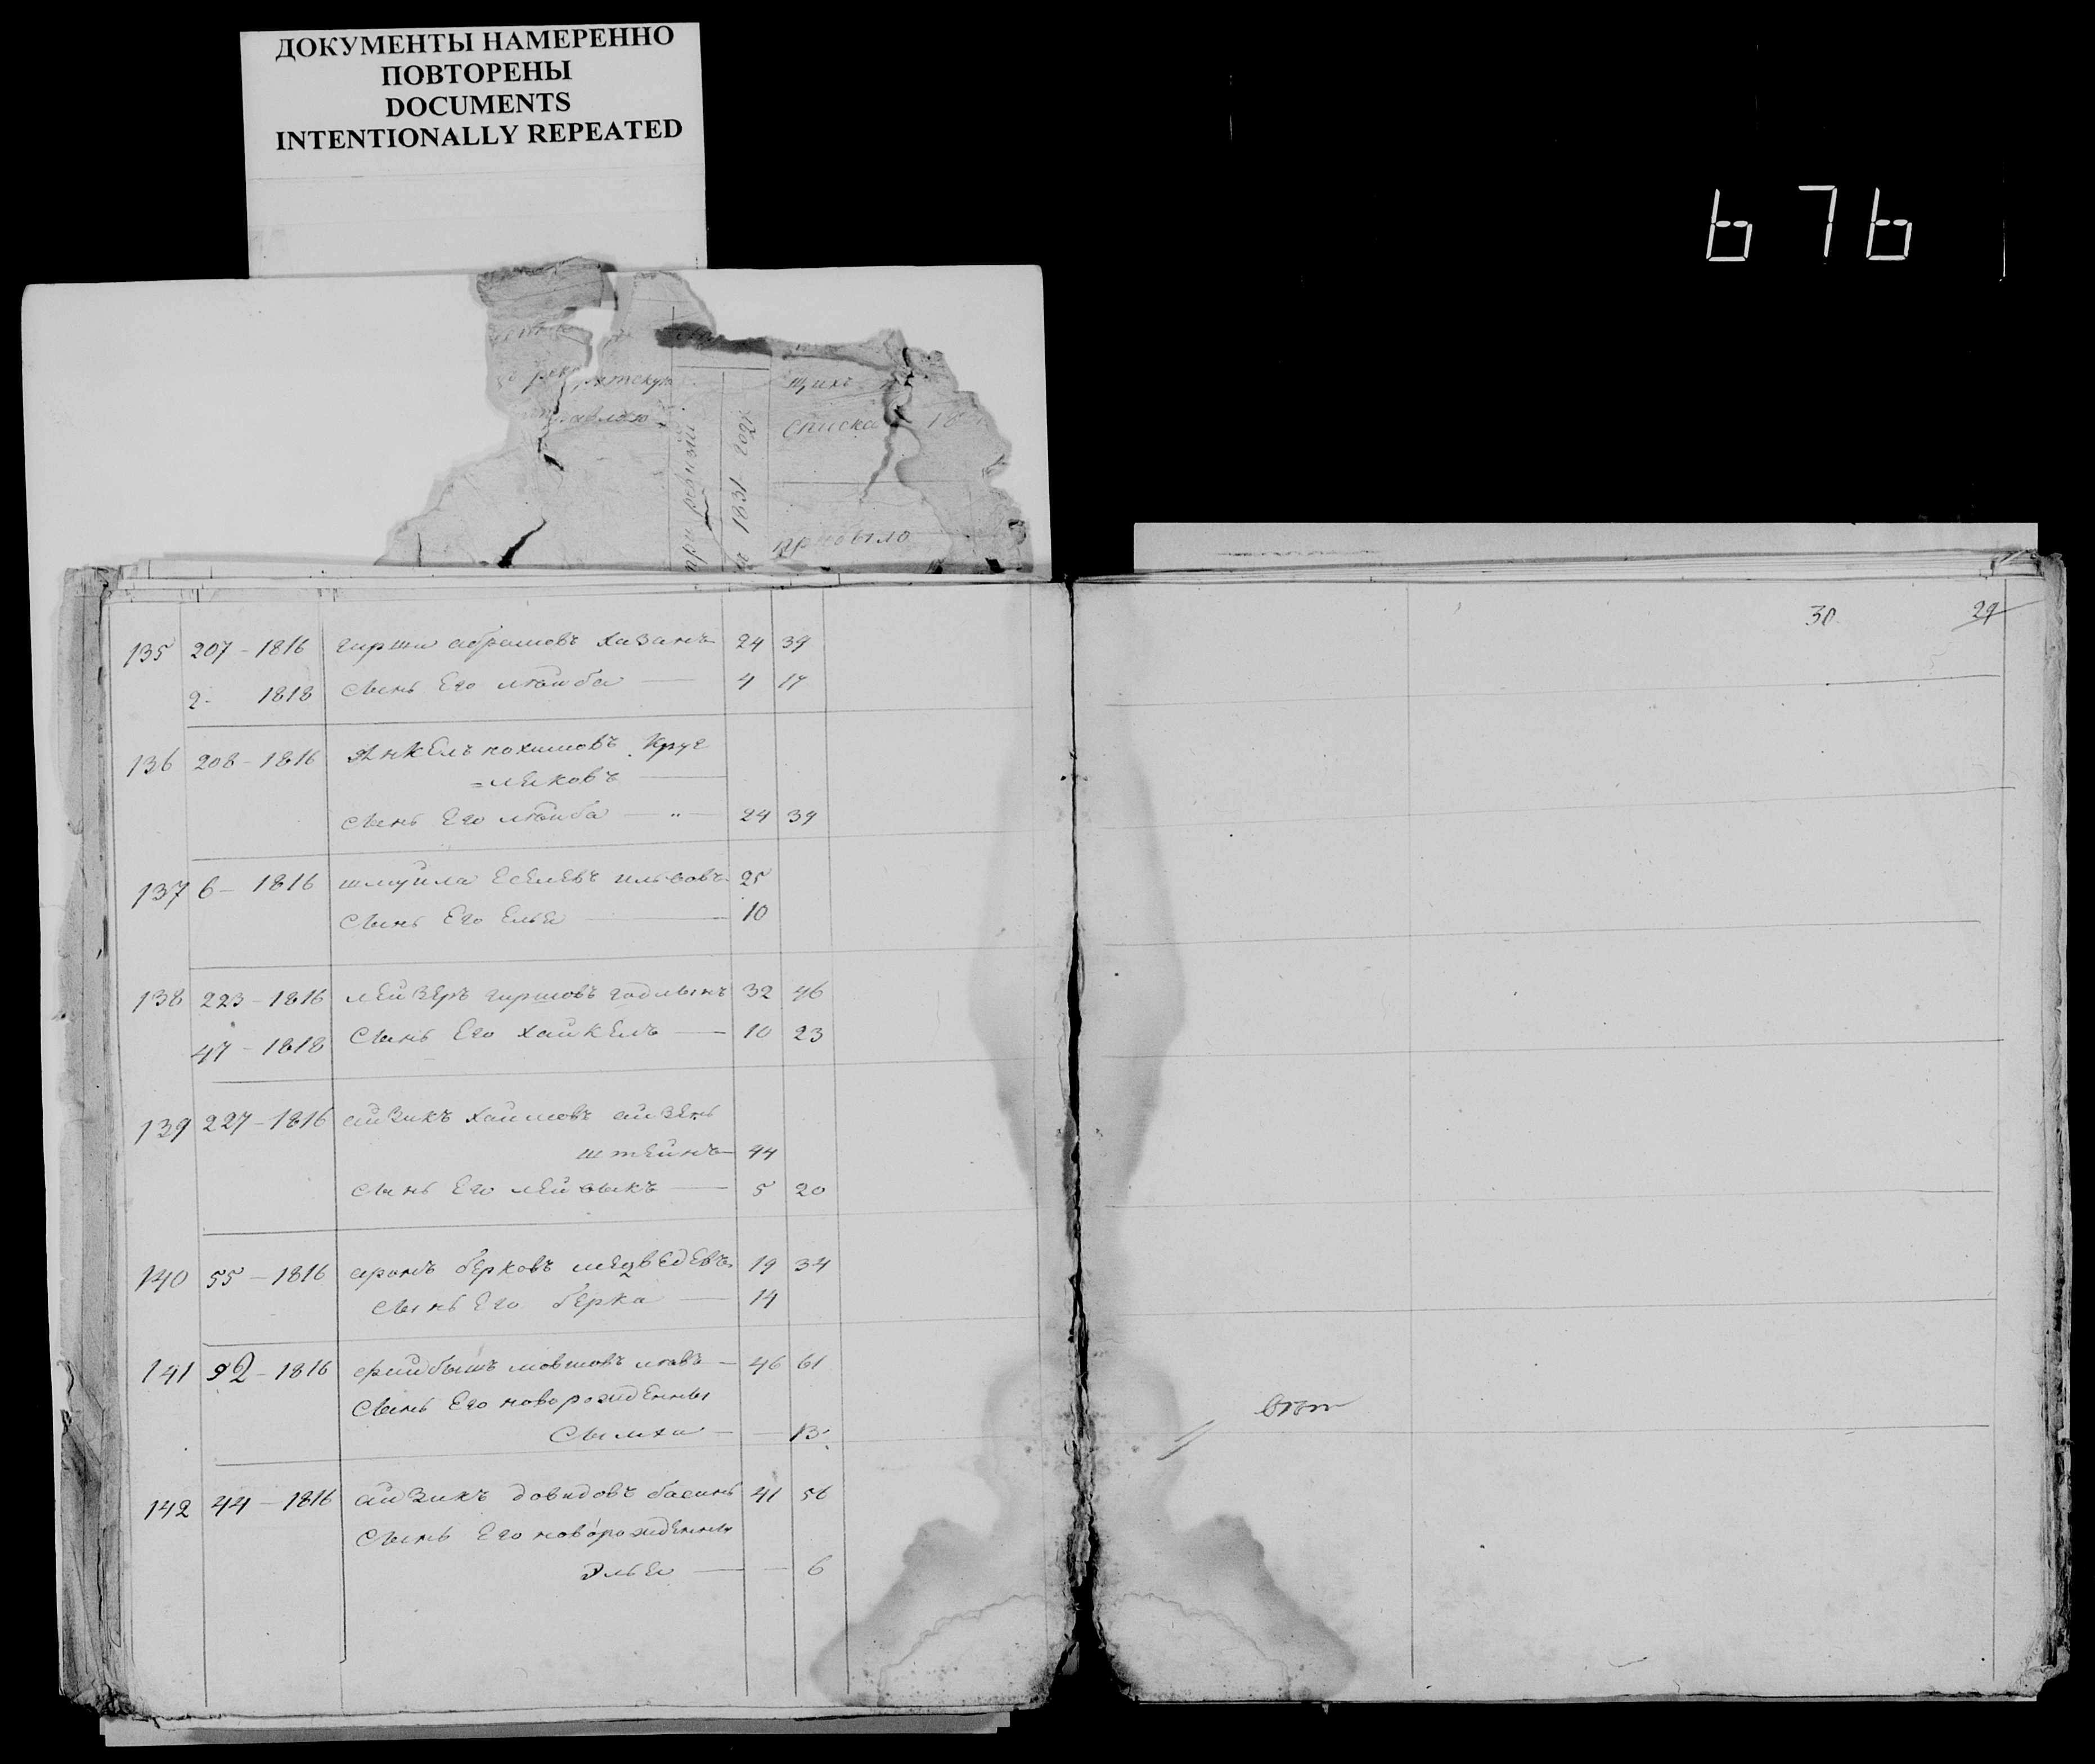 ДОКУМЕНТЫ НАМЕРЕННО
ПОВТОРЕНЫ
DOCUMENTS
INTENTIONALLY REPEATED
676
щихъ
списка 18
при ревизіи
1831 года
прибыло
30 29
135 207 - 1816 гирша абрамовъ хазанъ 24 39
2 - 1818 сынъ Его лѣиба — 4 17
136 208 - 1816 Янкель нохимовъ Круг
=ляковъ —
сынъ Его лѣиба — " — 24 39
137 6 - 1816 шмуйла Еселевъ 25
сынъ Его Елья — 10
138 223 - 1816 лЕйзЕръ гиршовъ 32 46
47 - 1818 Сынъ Его хайкЕль — 10 23
139 227 - 1816 айзикъ хаимовъ айзЕнь
штЕйнъ — 44
сынъ Его — 5 20
140 55 - 1816 аронъ бЕрковъ мЕдвЕдЕвъ 19 34
сынъ Его бЕрка — 14
141 92 - 1816 файбышъ мовшовъ — 46 61
Сынъ Его новорождЕнны
Сымха — — 13
142 44 - 1816 айзикъ довидовъ басинъ 41 56
Сынъ Его новорождЕнны
Элья — — 6